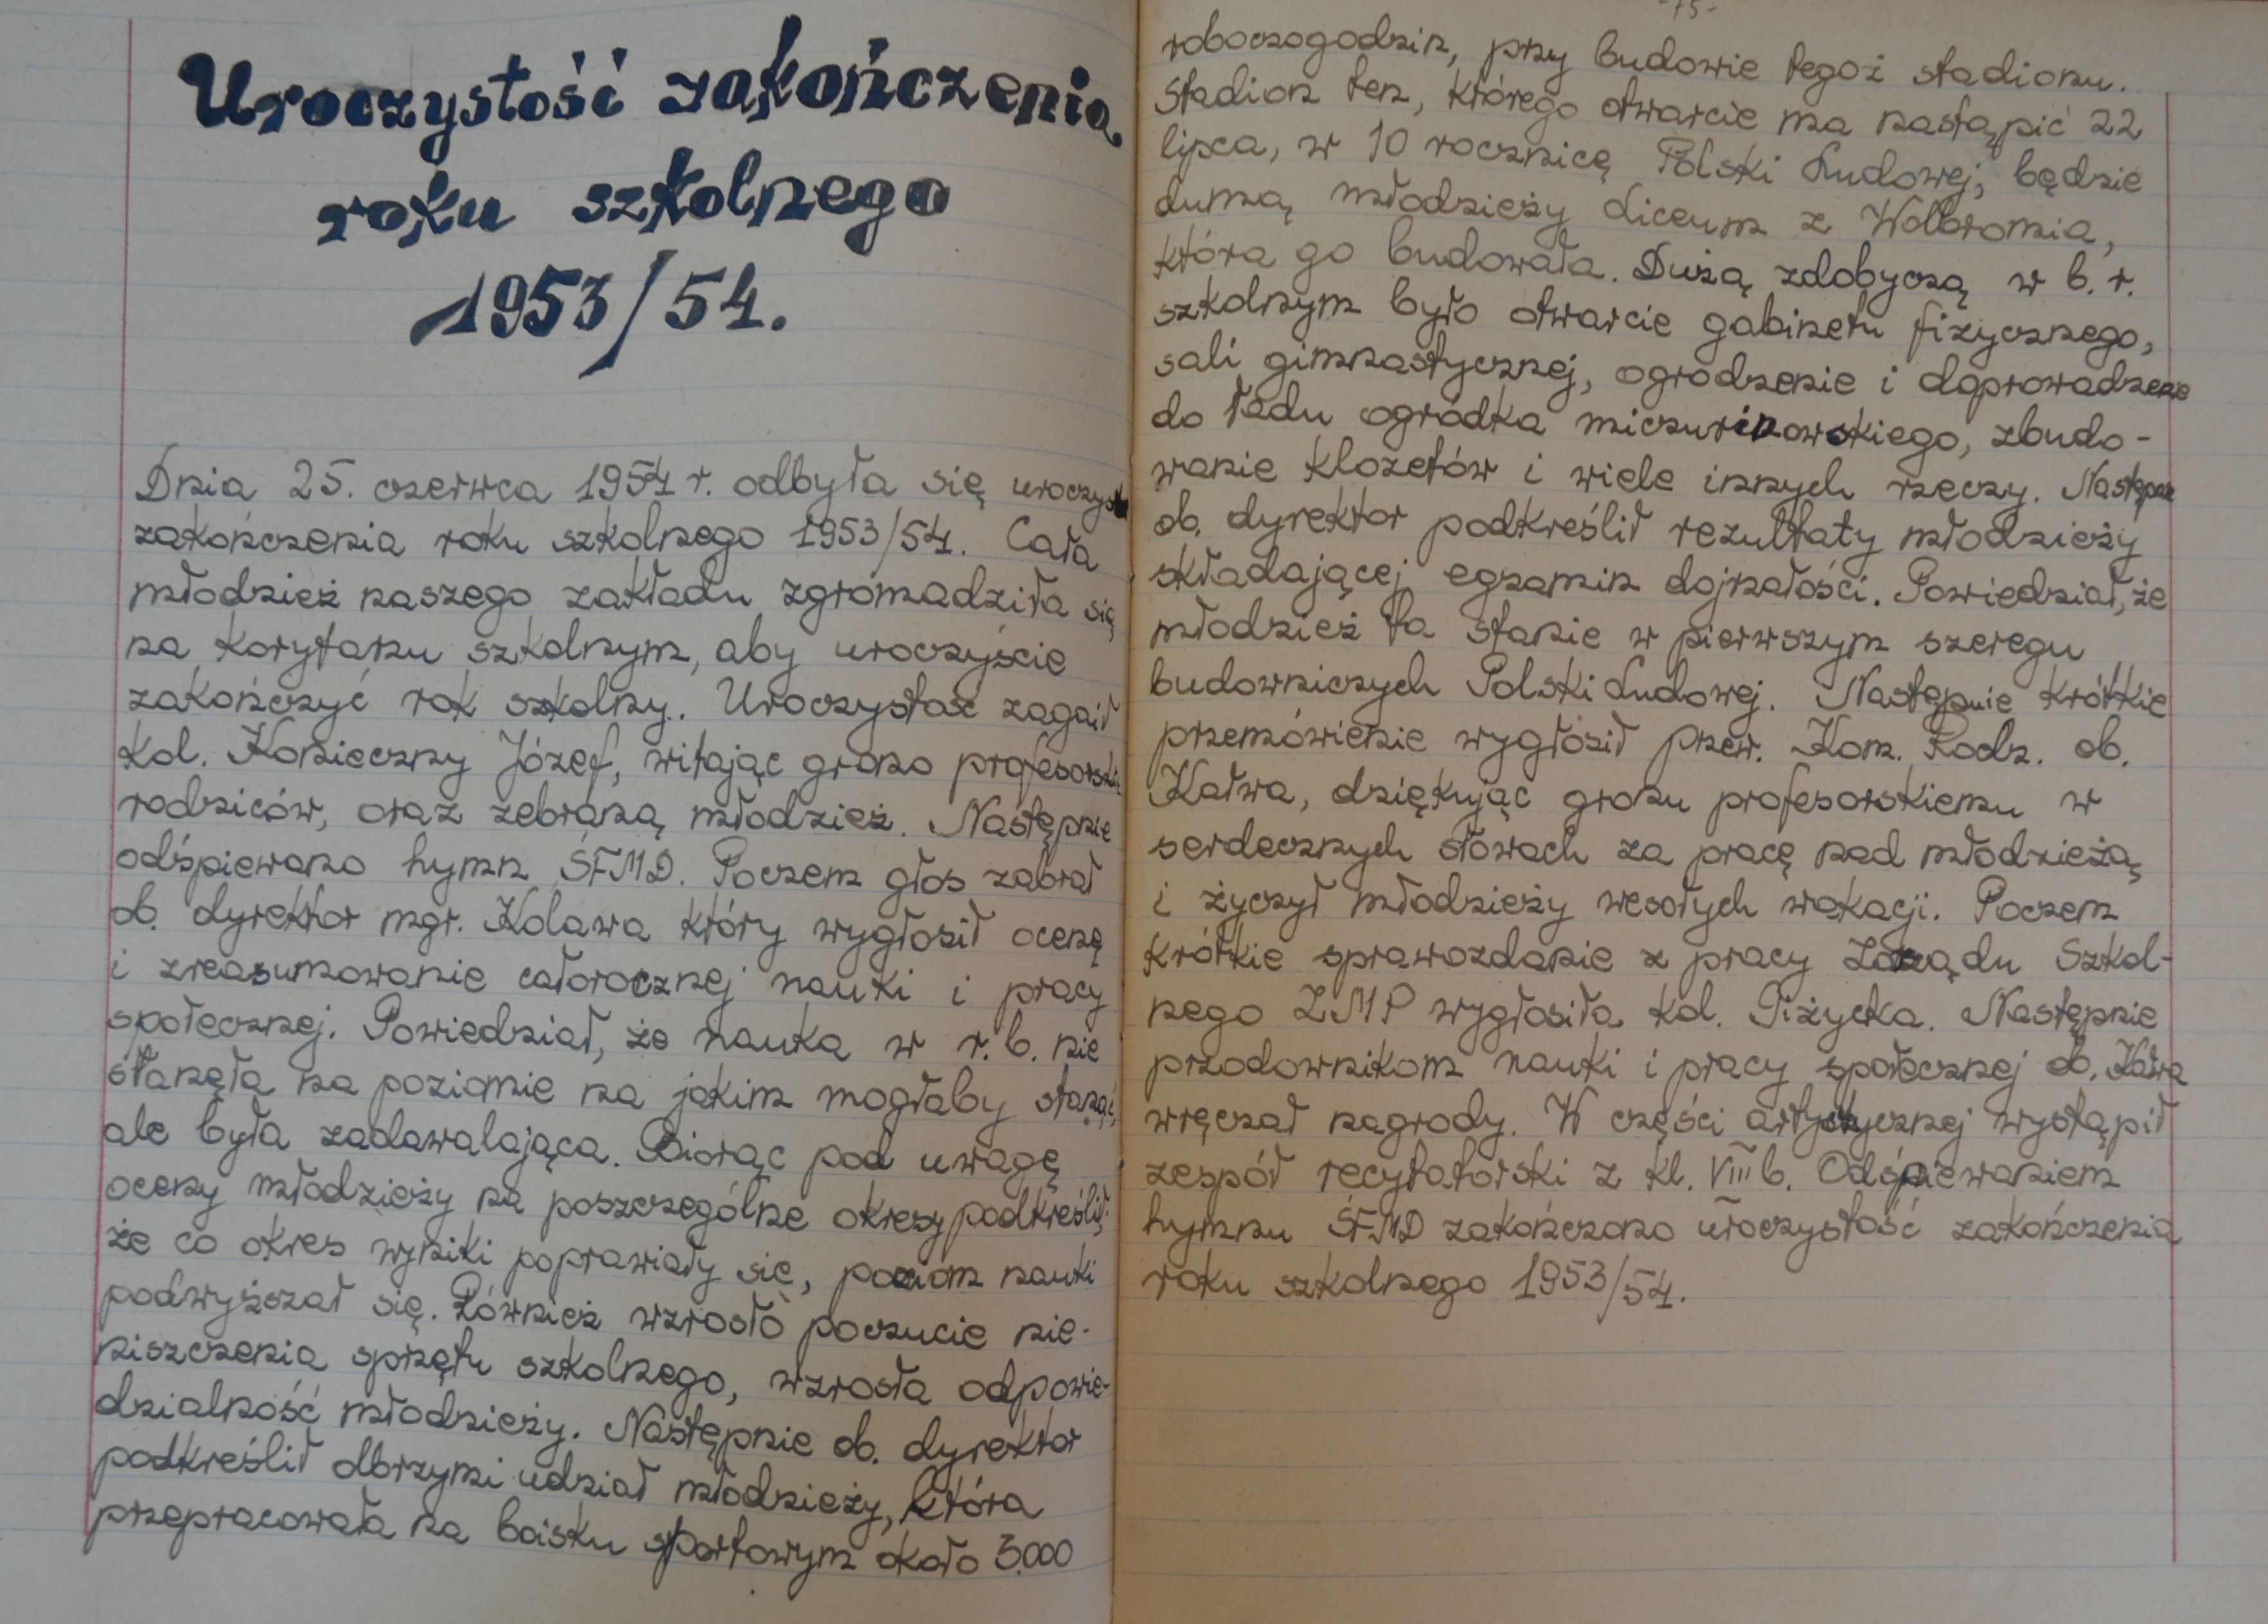 Uroczystość zakończenia
roku szkolnego
1953/54.
Dnia 25. czerwca 1954 r. odbyła się uroczyst
zakończenia roku szkolnego 1953/54. Cała
młodzież naszego zakładu zgromadziła się
na korytarzu szkolnym, aby uroczyście
zakończyć rok szkolny. Uroczystość zagaił
Kol. Konieczny Józef, witając grono profesorskie
rodziców, oraz zebraną młodzież. Następnie
odśpiewano hymn ŚFMD. Poczem głos zabrał
ob. dyrektor mgr. Kolawa który wygłosił ocenę
i zreasumowanie całorocznej nauki i pracy
społecznej. Powiedział, że nauka w r. b. nie
stanęła na poziomie na jakim mogłaby stanąć,
ale była zadawalająca. Biorąc pod uwagę
oceny młodzieży na poszczególne okresy podkreślił:
że co okres wyniki poprawiały się, poziom nauki
podwyższał się. Również wzrosło poczucie nie-
niszczenia sprzętu szkolnego, wzrosła odpowie-
dzialność młodzieży. Następnie ob. dyrektor
podkreślił olbrzymi udział młodzieży, która
przepracowała na boisku sportowym około 3.000
-75-
roboczogodzin, przy budowie tegoż stadionu.
Stadion ten, którego otwarcie ma nastąpić 22
lipca, w 10 rocznicę Polski Ludowej, będzie
dumą młodzieży Liceum z Wolbromia,
która go budowała. Dużą zdobyczą w b. r.
szkolnym było otwarcie gabinetu fizycznego,
sali gimnastycznej, ogrodzenie i doprowadzenie
do ładu ogródka miczurinowskiego, zbudo-
wanie klozetów i wiele innych rzeczy. Następnie
ob. dyrektor podkreślił rezultaty młodzieży
składającej egzamin dojrzałości. Powiedział, że
młodzież ta stanie w pierwszym szeregu
budowniczych Polski Ludowej. Następnie krótkie
przemówienie wygłosił przew. Kom. Rodz. ob.
Kałwa, dziękując gronu profesorskiemu w
serdecznych słowach za pracę nad młodzieżą
i życzył młodzieży wesołych wakacji. Poczem
krótkie sprawozdanie z pracy Zarządu Szkol-
nego ZMP wygłosiła kol. Piżycka. Następnie
przodownikom nauki i pracy społecznej ob. Kałwa
wręczał nagrody. W części artystycznej wystąpił
zespół recytatorski z kl. VIII b. Odśpiewaniem
hymnu ŚFMD zakończono uroczystość zakończenia
roku szkolnego 1953/54.